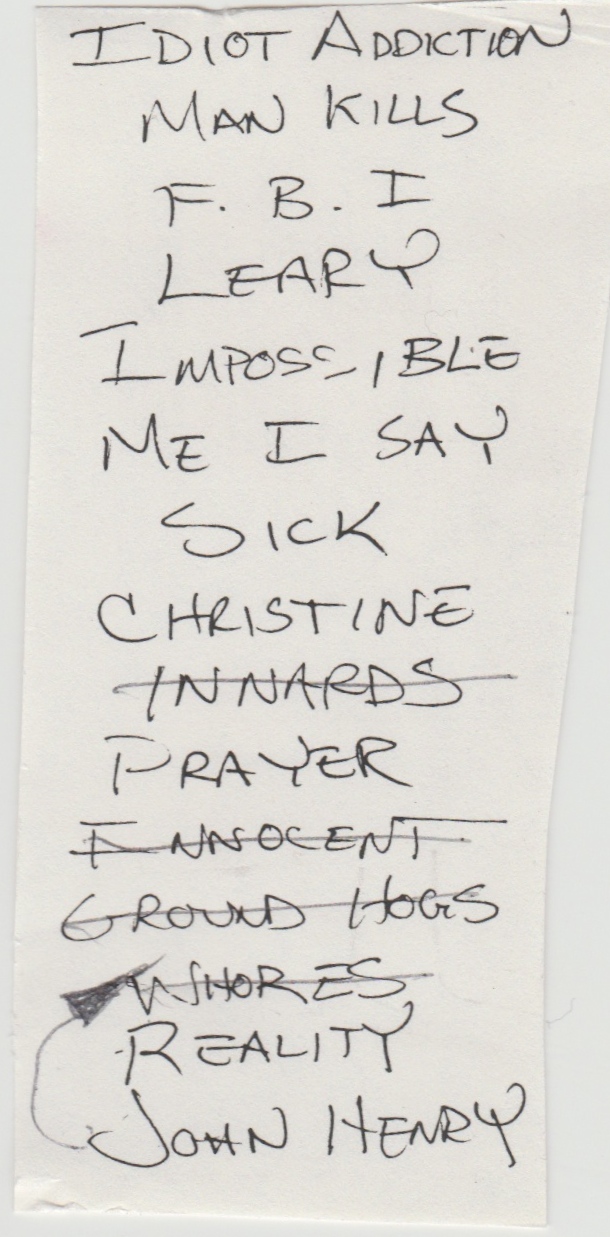 IDIOT ADDICTION
MAN KILLS
F. B. I
LEARY
IMPOSSIBLE
ME I SAY
SICK
CHRISTINE
INNARDS
PRAYER
INNOCENT
GROUND HOGS
WHORES
REALITY
JOHN HENRY